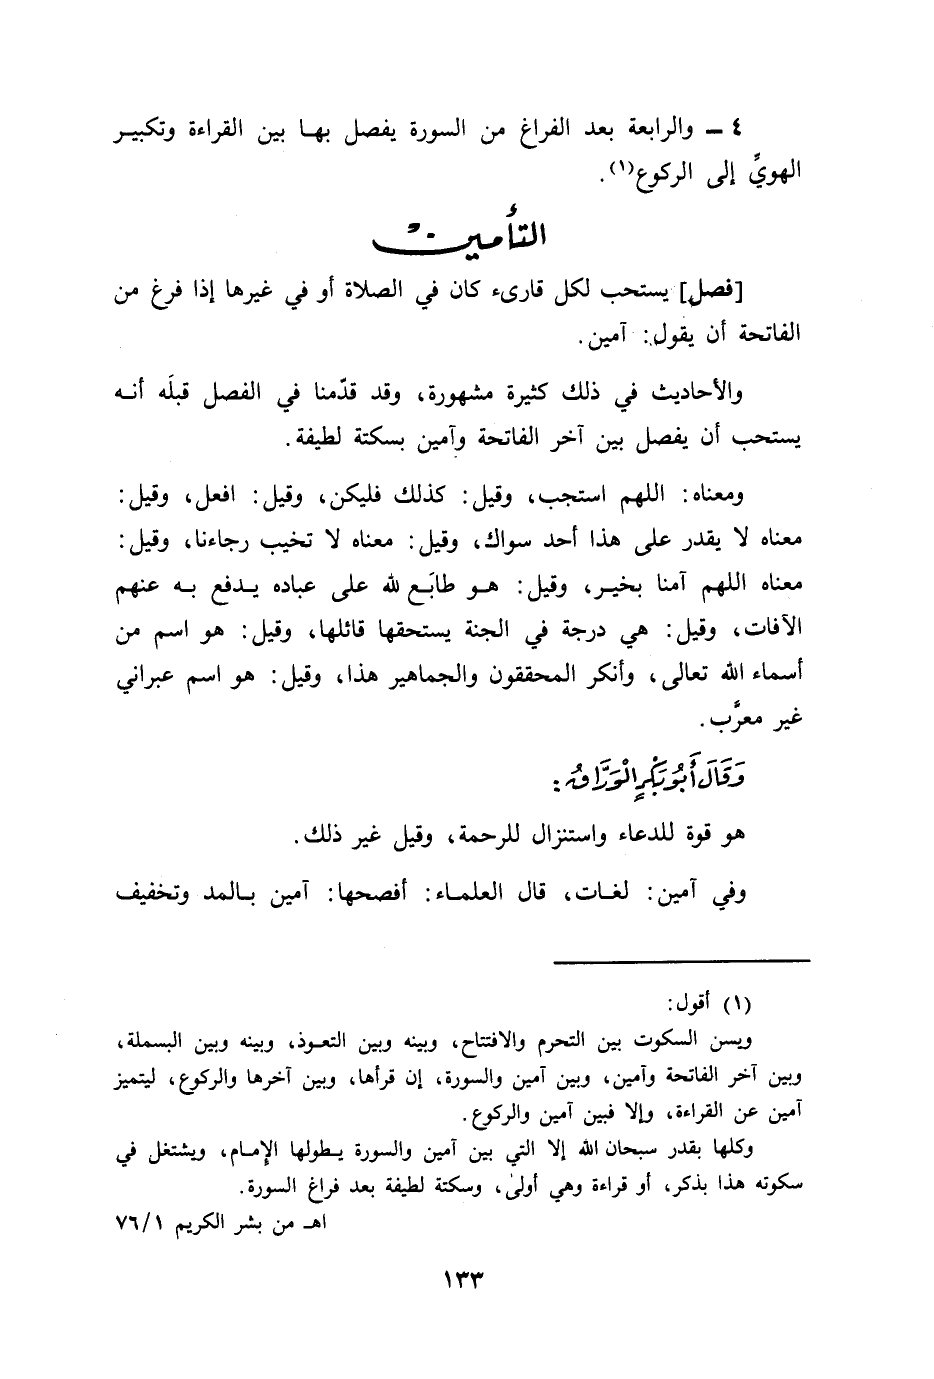 ٤ ــ والرابعة بعد الفراغ من السورة يفصل بها بين القراءة وتكبير
الهويِّ إلى الركوع(١).
التأمين
[فصل] يستحب لكل قارىء كان في الصلاة أو في غيرها إذا فرغ من
الفاتحة أن يقول: آمين.
والأحاديث في ذلك كثيرة مشهورة، وقد قدّمنا في الفصل قبلَه أنه
يستحب أن يفصل بين آخر الفاتحة وآمين بسكتة لطيفة.
ومعناه: اللهم استجب، وقيل: كذلك فليكن، وقيل: افعل، وقيل:
معناه لا يقدر على هذا أحد سواك، وقيل: معناه لا تخيب رجاءنا، وقيل:
معناه اللهم آمنا بخير، وقيل: هو طابَع لله على عباده يدفع به عنهم
الآفات، وقيل: هي درجة في الجنة يستحقها قائلها، وقيل: هو اسم من
أسماء الله تعالى، وأنكر المحققون والجماهير هذا، وقيل: هو اسم عبراني
غير معرَّب.
وَقَالَ أَبُو بَكْرٍ الْوَرَّاقُ:
هو قوة للدعاء واستنزال للرحمة، وقيل غير ذلك.
وفي آمين: لغات، قال العلماء: أفصحها: آمين بالمد وتخفيف
(١) أقول:
ويسن السكوت بين التحرم والافتتاح، وبينه وبين التعوذ، وبينه وبين البسملة،
وبين آخر الفاتحة وآمين، وبين آمين والسورة، إن قرأها، وبين آخرها والركوع، ليتميز
آمين عن القراءة، وإلا فبين آمين والركوع.
وكلها بقدر سبحان الله إلا التي بين آمين والسورة يطولها الإمام، ويشتغل في
سكوته هذا بذكر، أو قراءة وهي أولىٰ، وسكتة لطيفة بعد فراغ السورة.
اهـ من بشر الكريم ٧٦/١
١٣٣